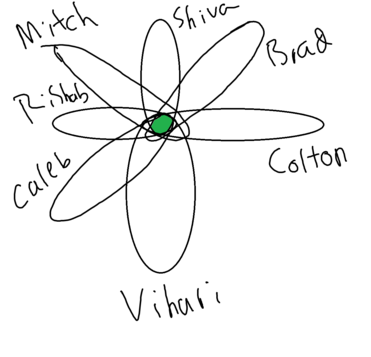 Mitch
Shiva
Brad
Rishab
Colton
Caleb
Vihari